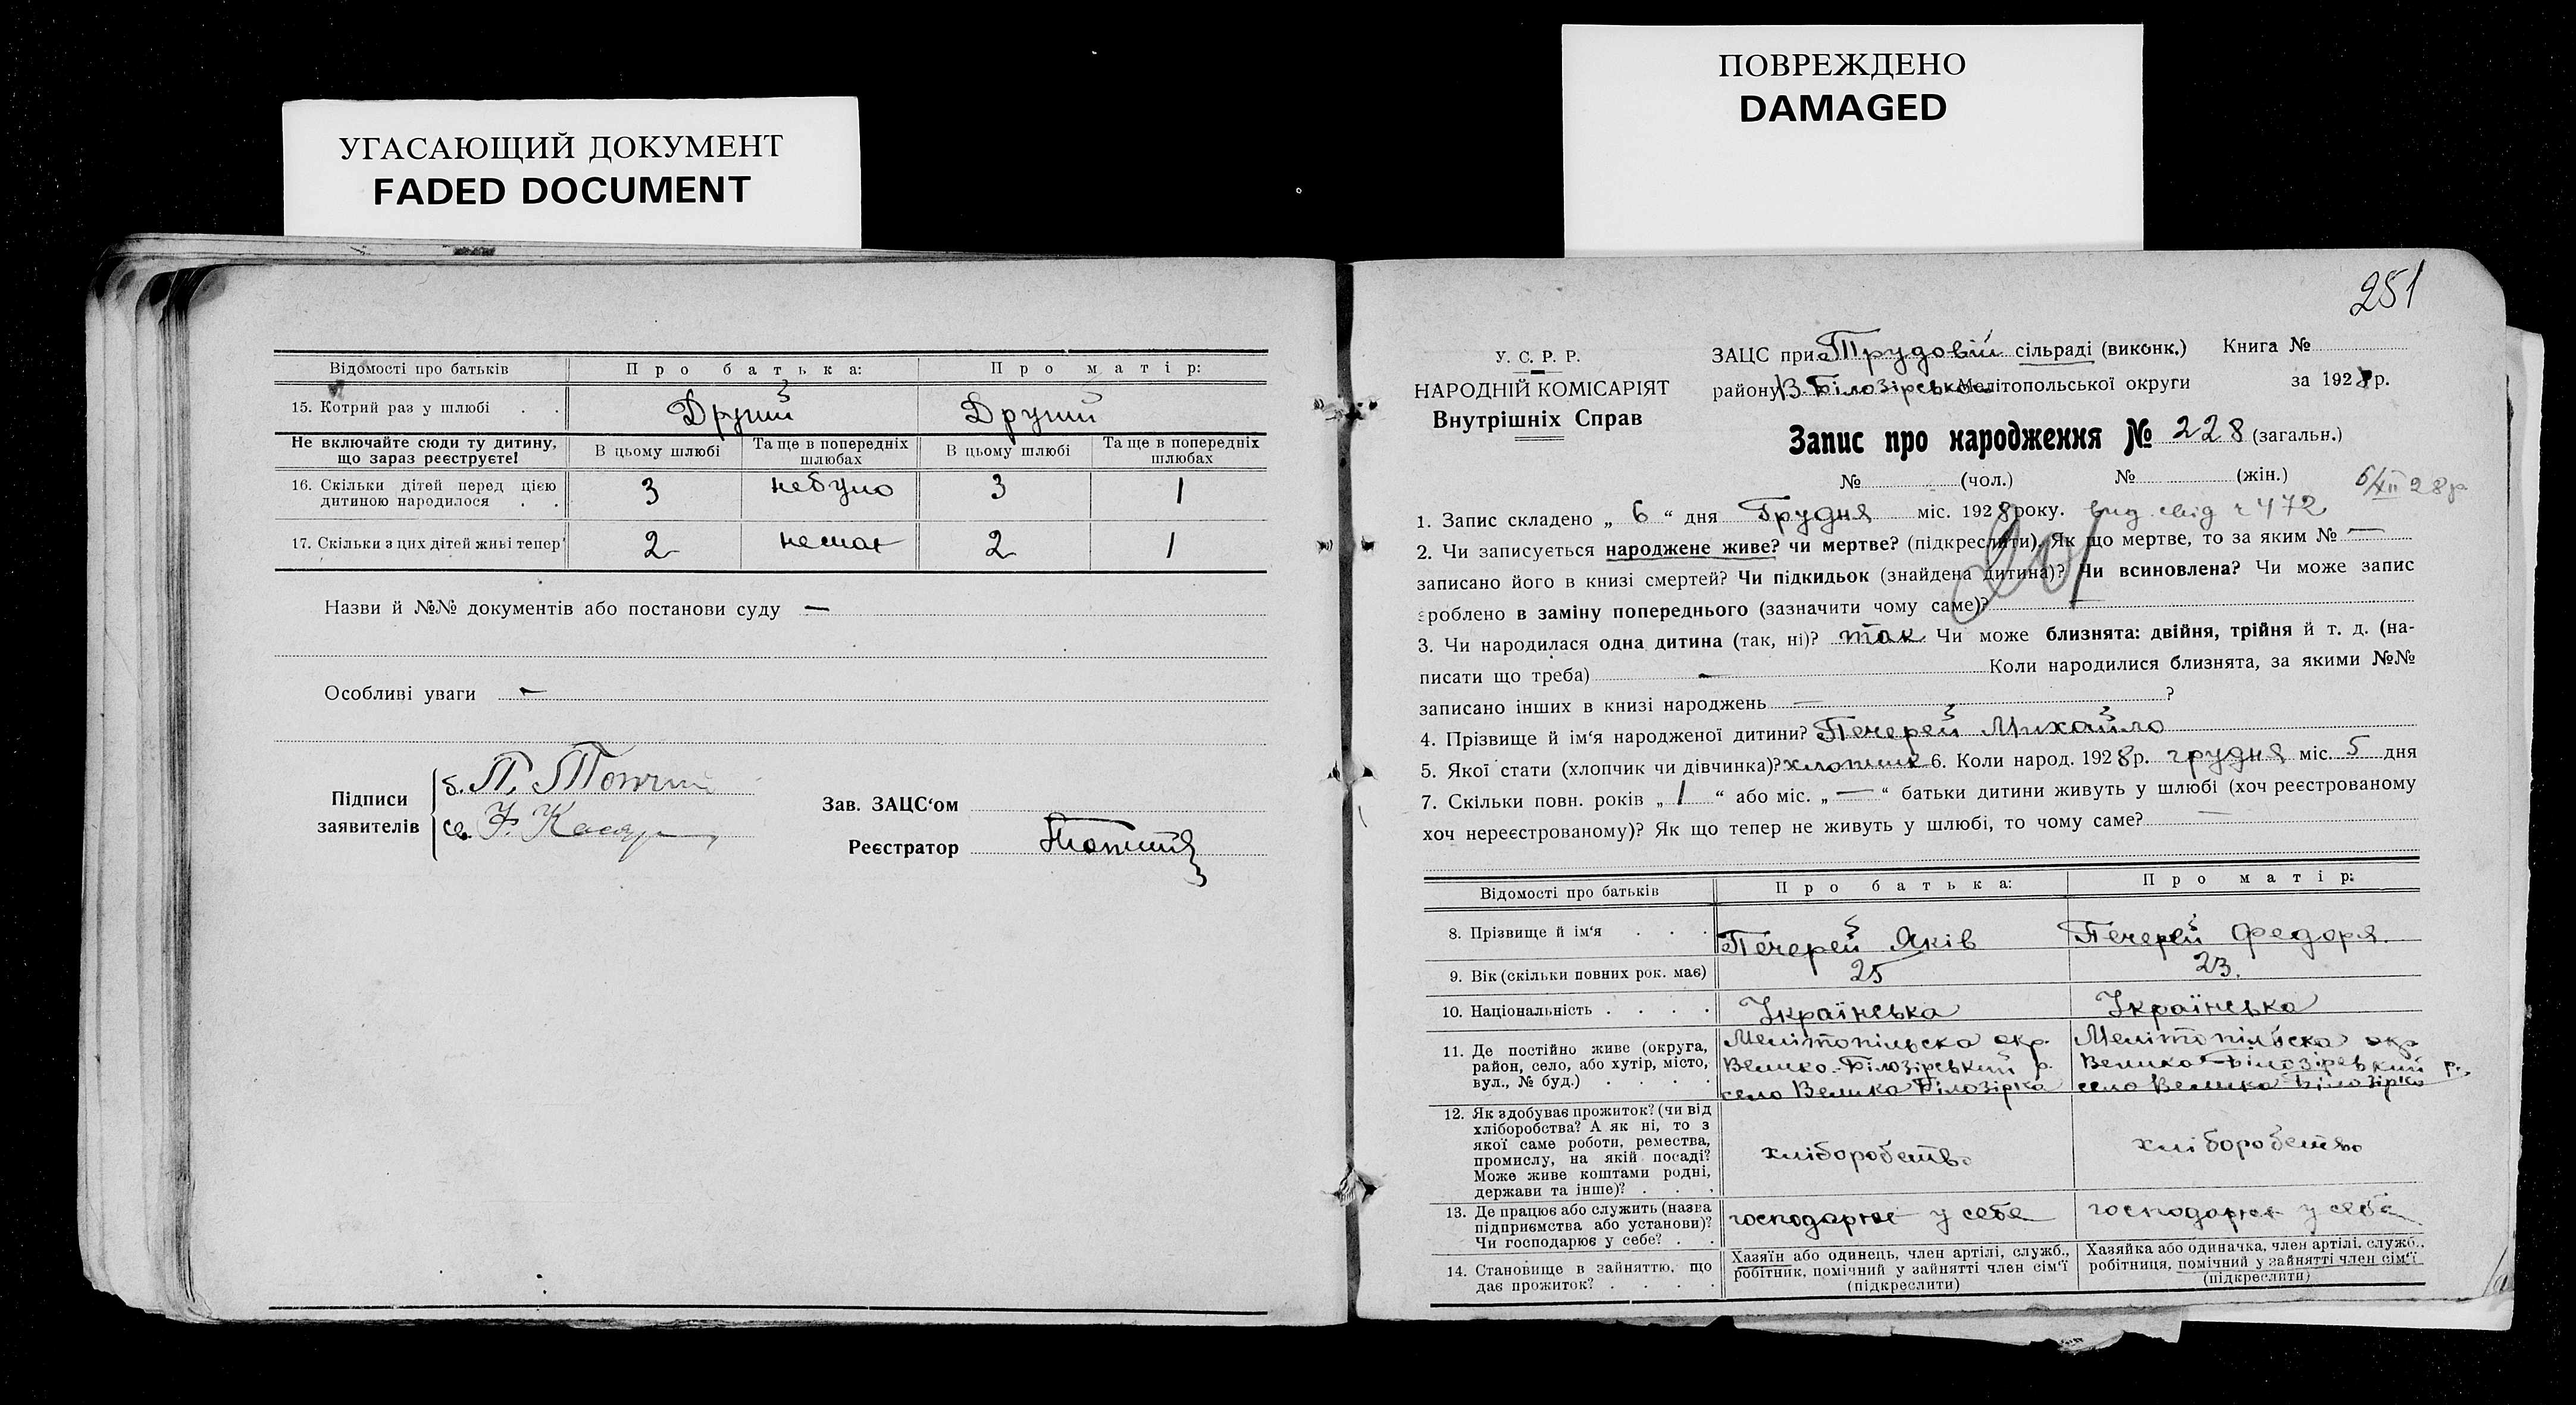 УГАСАЮЩИЙ ДОКУМЕНТ
FADED DOCUMENT
ПОВРЕЖДЕНО
DAMAGED
Відомості про батьків Про батька: Про матір:
15. Котрий раз у шлюбі . . Другий Другий
Не включайте сюди ту дитину, що зараз реєструєте! В цьому шлюбі Та ще в попередніх шлюбах В цьому шлюбі Та ще в попередніх шлюбах
16. Скільки дітей перед цією дитиною народилося . . 3 небуло 3 1
17. Скільки з цих дітей живі тепер 2 немає 2 1
Назви й №№ документів або постанови суду —
Особливі уваги —
Підписи заявителів
б. П.
св. Ф.
Зав. ЗАЦС'ом
Реєстратор
251
У. С. Р. Р.
НАРОДНІЙ КОМІСАРІЯТ
Внутрішніх Справ
ЗАЦС при Трудовій сільраді (виконк.) Книга №
району В. Білозірсько Мелітопольської округи за 1928 р.
Запис про народження № 228 (загальн.)
№ (чол.) № (жін.) 6/XII 28 р
1. Запис складено „ 6 “ дня Грудня міс. 1928 року. вид. свід ч 472
2. Чи записується народжене живе? чи мертве? (підкреслити). Як що мертве, то за яким № —
записано його в книзі смертей? Чи підкидьок (знайдена дитина)? Чи всиновлена? Чи може запис
зроблено в заміну попереднього (зазначити чому саме)? —
3. Чи народилася одна дитина (так, ні)? так Чи може близнята: двійня, трійня й т. д. (на-
писати що треба) — Коли народилися близнята, за якими №№
записано інших в книзі народжень — ?
4. Прізвище й ім'я народженої дитини? Печерей Михайло
5. Якої стати (хлопчик чи дівчинка)? хлопчик 6. Коли народ. 1928 р. грудня міс. 5 дня
7. Скільки повн. років „ 1 “ або міс. „ — “ батьки дитини живуть у шлюбі (хоч реєстрованому
хоч нереєстрованому)? Як що тепер не живуть у шлюбі, то чому саме? —
Відомості про батьків Про батька: Про матір:
8. Прізвище й ім'я . . . Печерей Яків Печерей Федоря.
9. Вік (скільки повних рок. має) 25 23.
10. Національність . . . . Українська Українська
11. Де постійно живе (округа, Мелітопільска окр. Мелітопільска окр
район, село, або хутір, місто, Велико-Білозірський р. Велико-Білозірський р.
вул., № буд.) . . . . село Велика Білозірка село Велика Білозірка
12. Як здобуває прожиток? (чи від
хліборобства? А як ні, то з
якої саме роботи, ремества,
промислу, на якій посаді?
Може живе коштами родні,
держави та інше)? . . .
хліборобство хліборобство
13. Де працює або служить (назва
підприємства або установи)?
Чи господарює у себе? . .
господарює у себе господарює у себе
14. Становище в зайняттю, що
дає прожиток? . . . .
Хазяїн або одинець, член артілі, служб.,
робітник, помічний у зайнятті член сім'ї
(підкреслити)
Хазяйка або одиначка, член артілі, служб.,
робітниця, помічний у зайнятті член сім'ї
(підкреслити)